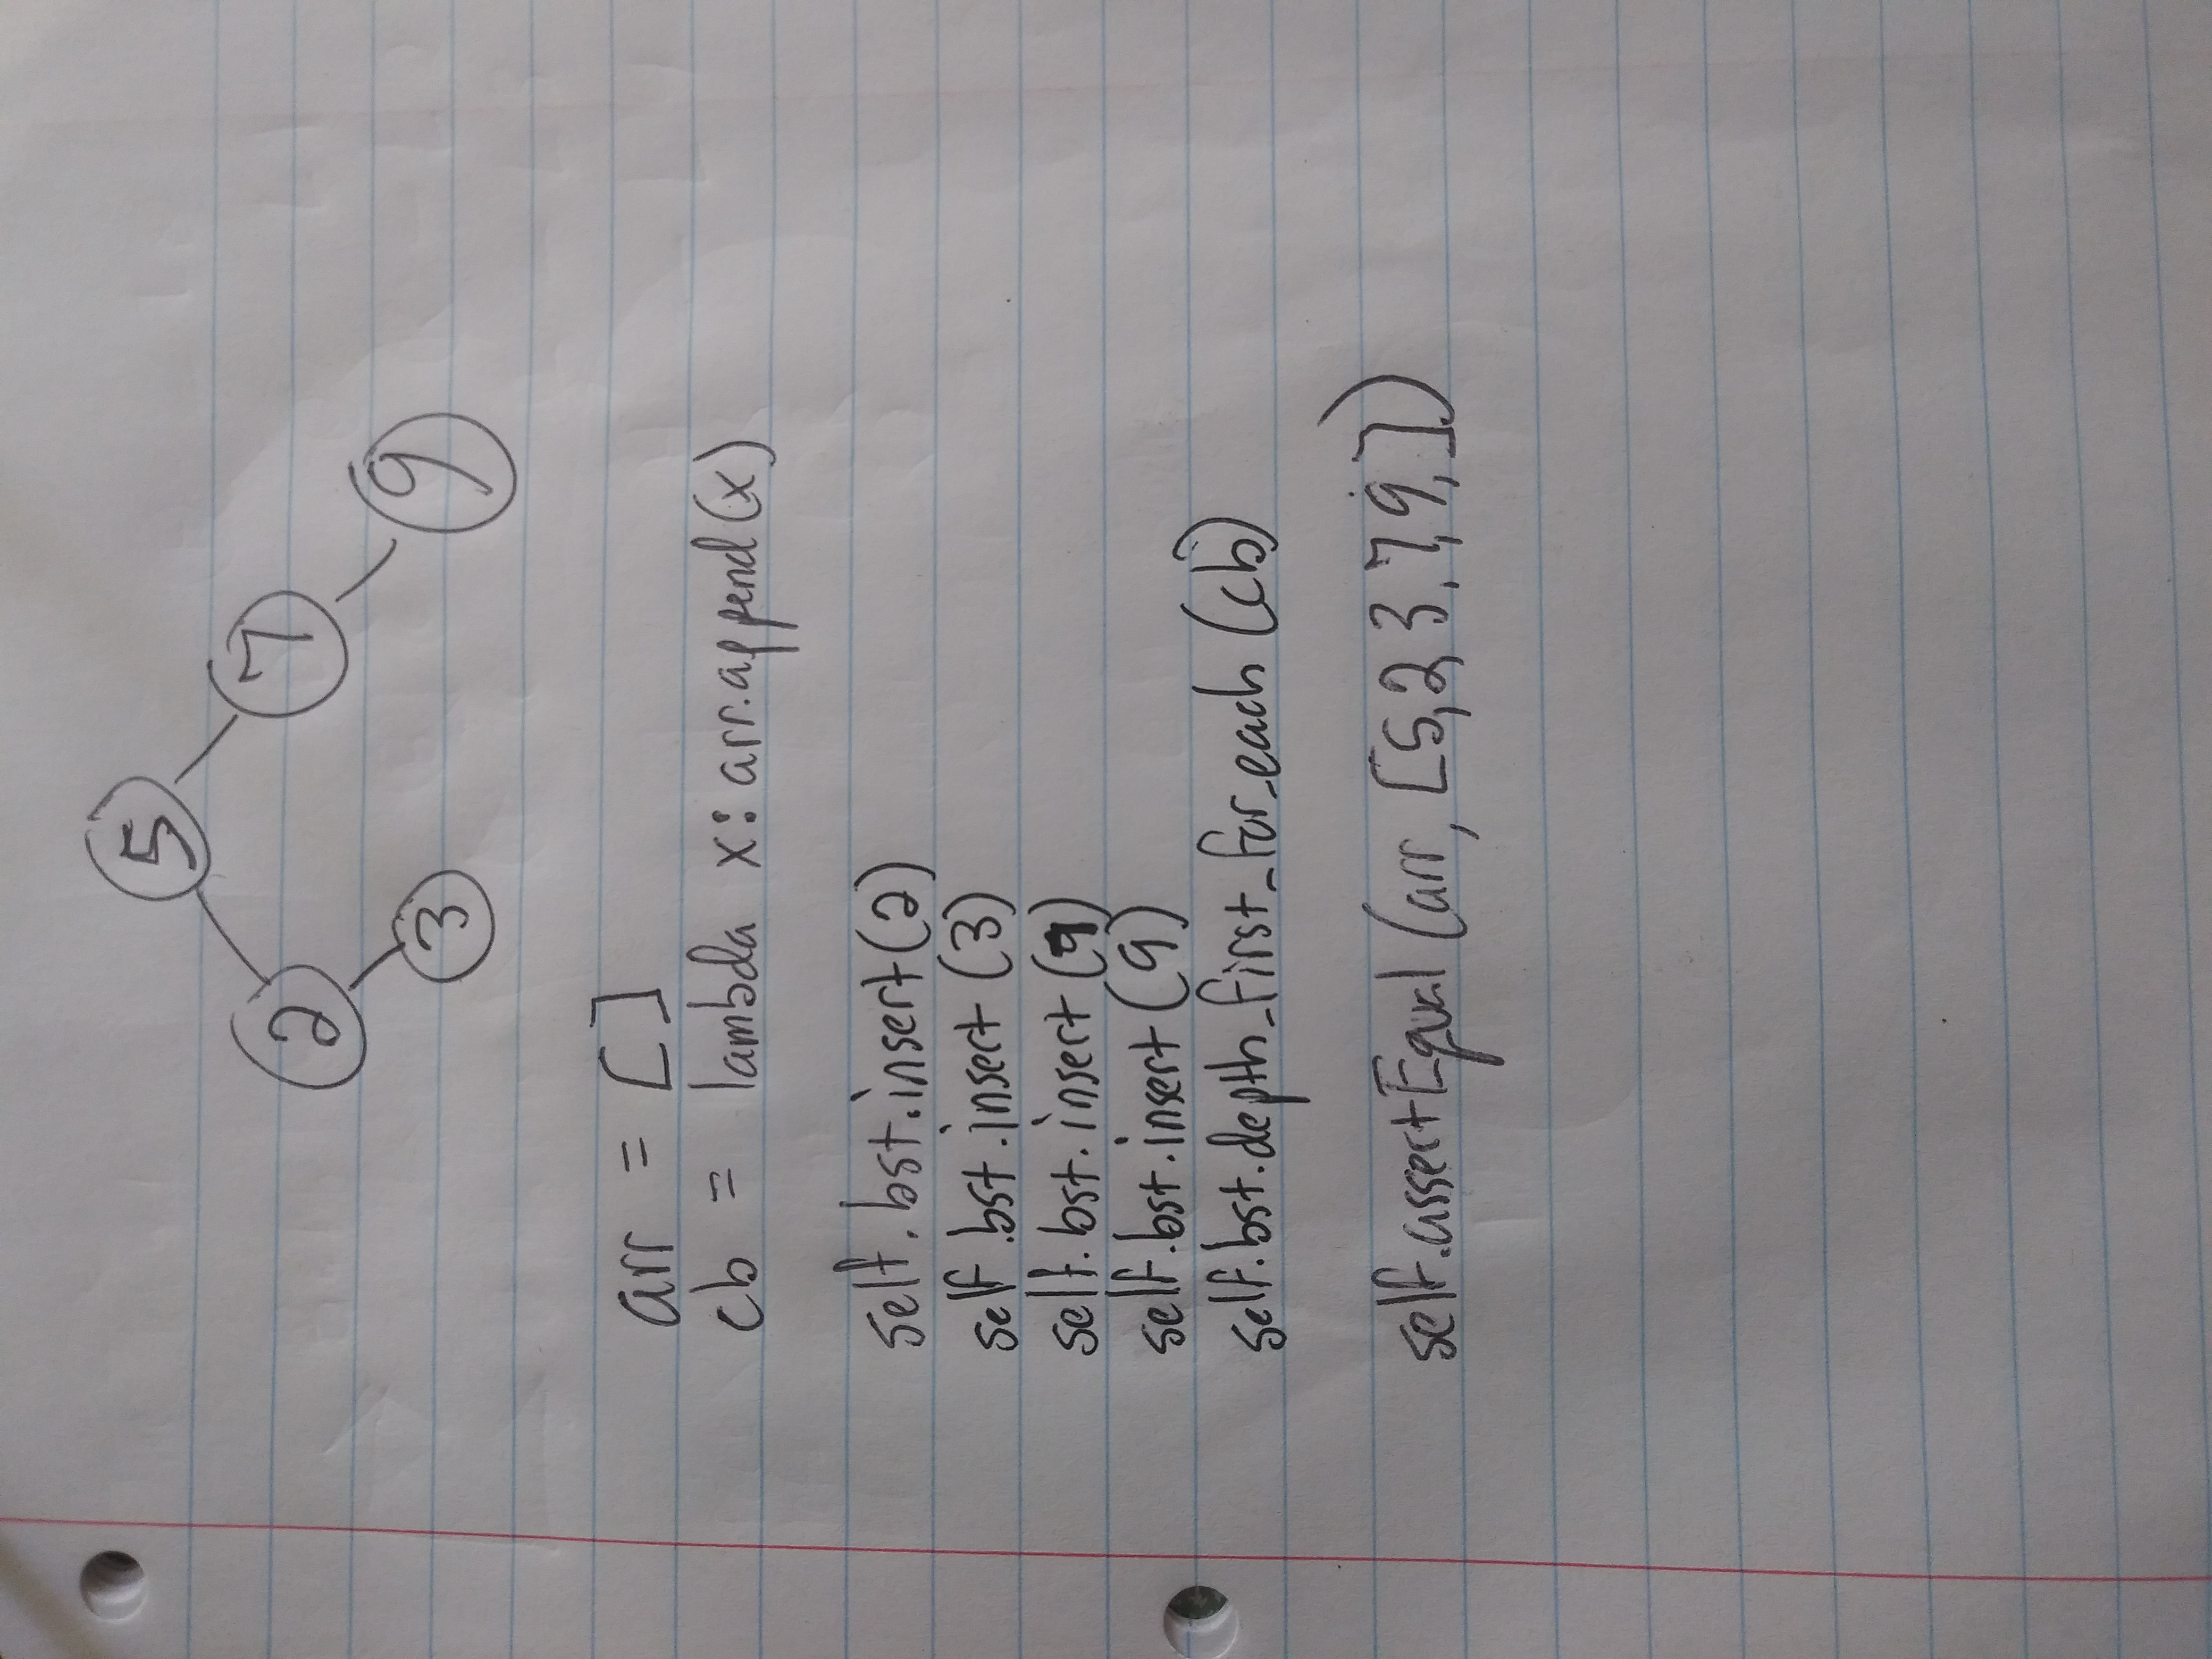 5
2 7
3 9
arr = []
cb = lambda x: arr.append(x)
self.bst.insert(2)
self.bst.insert(3)
self.bst.insert
self.bst.insert(9)
self.bst.depth_first_for_each(cb)
self.assertEqual(arr, [5,2,3,7,9,])